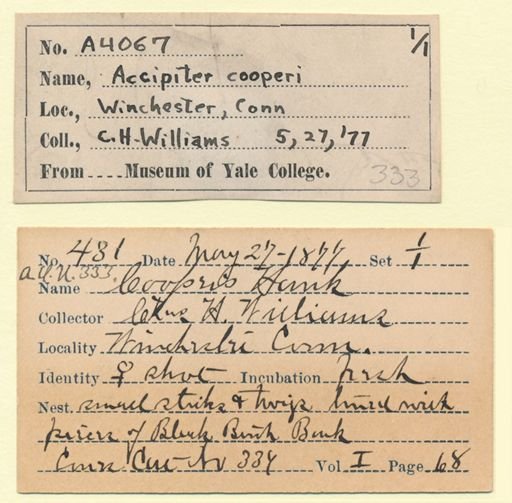 No. A4067 1/1
Name, Accipiter cooperi
Loc., Winchester, Conn
Coll., C.H. Williams 5, 27, '77
From .... Museum of Yale College. 333
No. 431 Date May 27-1877 Set 1/1
a.o.u. 333
Name Cooper's Hawk
Collector Chas H. Williams
Locality Winchester Conn.
Identity ♀ shot Incubation fresh
Nest. small sticks & twigs lined with
pieces of Black Birch Bark
Coll Cat No 334 Vol I Page 68